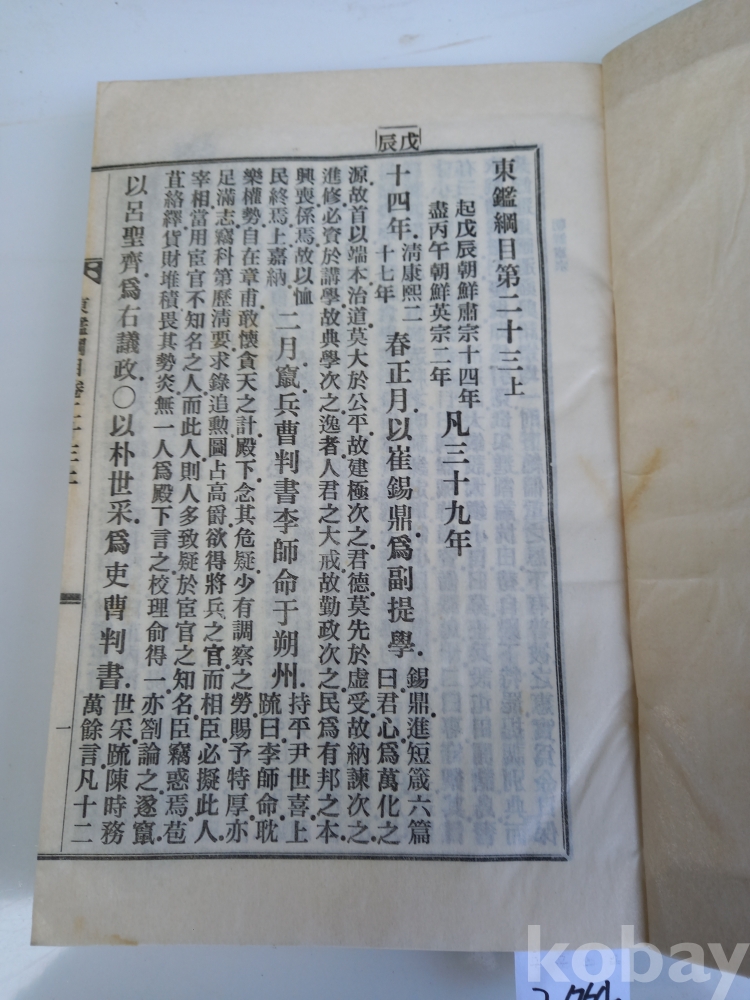 戊辰
東鑑綱目第二十三上
起戊辰朝鮮肅宗十四年
盡丙午朝鮮英宗二年
凡三十九年
十四年.
淸康熙二
十七年
春正月以崔錫鼎爲副提學.
錫鼎進短箴六篇
曰君心爲萬化之
源.故首以端本.治道莫大於公平.故建極次之.君德莫先於虛受.故納諫次之.
進修必資於講學.故典學次之.逸者人君之大戒.故勤政次之.民爲有邦之本.
興喪係焉.故以恤
民終焉.上嘉納
二月竄兵曹判書李師命于朔州.
持平尹世喜上
䟽曰李師命耽
樂權勢.自在章甫.敢懷貪天之計.殿下念其危疑.少有調察之勞.賜予特厚.亦
足滿志.竊科第.歷淸要.求錄追勳.圖占高爵.欲得將兵之官.而相臣必擬此人.
宰相當用宦官不知名之人.而此人則人多致疑於宦官之知名.臣竊惑焉.苞
苴絡繹.貨財堆積.畏其勢炎.無一人爲殿下言之.校理俞得一亦劄論之.遂竄.
以呂聖齊爲右議政.○以朴世采爲吏曹判書.
世采䟽陳時務
萬餘言凡十二
東鑑綱目卷二十三上
一
kobay